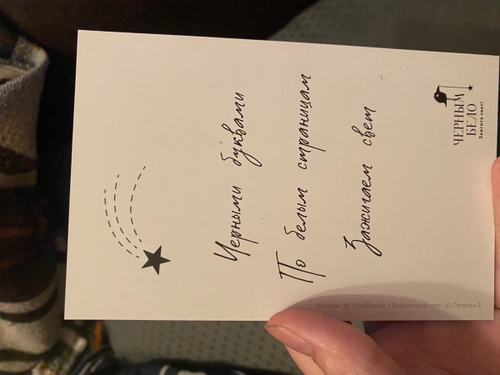 Черными буквами
По белым страницам
Зажигаем свет
ЧЕРНЫМ
БЕЛО
Зажгите свет!
Коллаж: © PinkPueblo / Shutterstock.com; © Петрова Е.